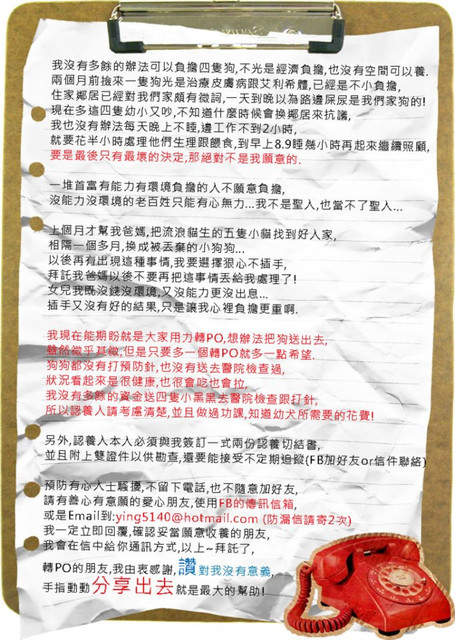 我沒有多餘的辦法可以負擔四隻狗,不光是經濟負擔,也沒有空間可以養.
兩個月前撿來一隻狗光是治療皮膚病跟艾利希體,已經是不小負擔,
住家鄰居已經對我們家頗有微詞,一天到晚以為路邊屎尿是我們家狗的!
現在多這四隻幼小又吵,不知道什麼時候會換鄰居來抗議,
我也沒有辦法每天晚上不睡,邊工作不到2小時,
就要花半小時處理他們生理跟餵食,到早上8.9睡幾小時再起來繼續照顧,
要是最後只有最壞的決定,那絕對不是我願意的.
一堆首富有能力有環境負擔的人不願意負擔,
沒能力沒環境的老百姓只能有心無力...我不是聖人,也當不了聖人...
上個月才幫我爸媽,把流浪貓生的五隻小貓找到好人家,
相隔一個多月,換成被丟棄的小狗狗...
以後再有出現這種事情,我要選擇狠心不插手,
拜託我爸媽以後不要再把這事情丟給我處理了!
女兒我既沒錢沒環境,又沒能力更沒出息...
插手又沒有好的結果,只是讓我心裡負擔更重啊.
我現在能期盼就是大家用力轉PO,想辦法把狗送出去,
雖然微乎其微,但是只要多一個轉PO就多一點希望.
狗狗都沒有打預防針,也沒有送去醫院檢查過,
狀況看起來是很健康,也很會吃也會拉,
我沒有多餘的資金送四隻小黑黑去醫院檢查跟打針,
所以認養人請考慮清楚,並且做過功課,知道幼犬所需要的花費!
另外,認養人本人必須與我簽訂一式兩份認養切結書,
並且附上雙證件以供勘查,還要能接受不定期追蹤(FB加好友or信件聯絡)
預防有心人士騷擾,不留下電話,也不隨意加好友,
請有善心有意願的愛心朋友,使用FB的傳訊信箱,
或是Email到:ying5140@hotmail.com (防漏信請寄2次)
我一定立即回覆,確認妥當願意收養的朋友,
我會在信中給你通訊方式,以上~拜託了,
轉PO的朋友,我由衷感謝,讚對我沒有意義,
手指動動分享出去就是最大的幫助!